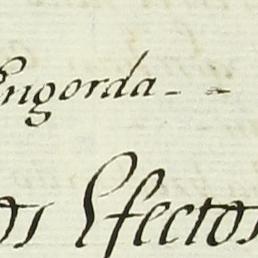 Engorda - -
os Efectos